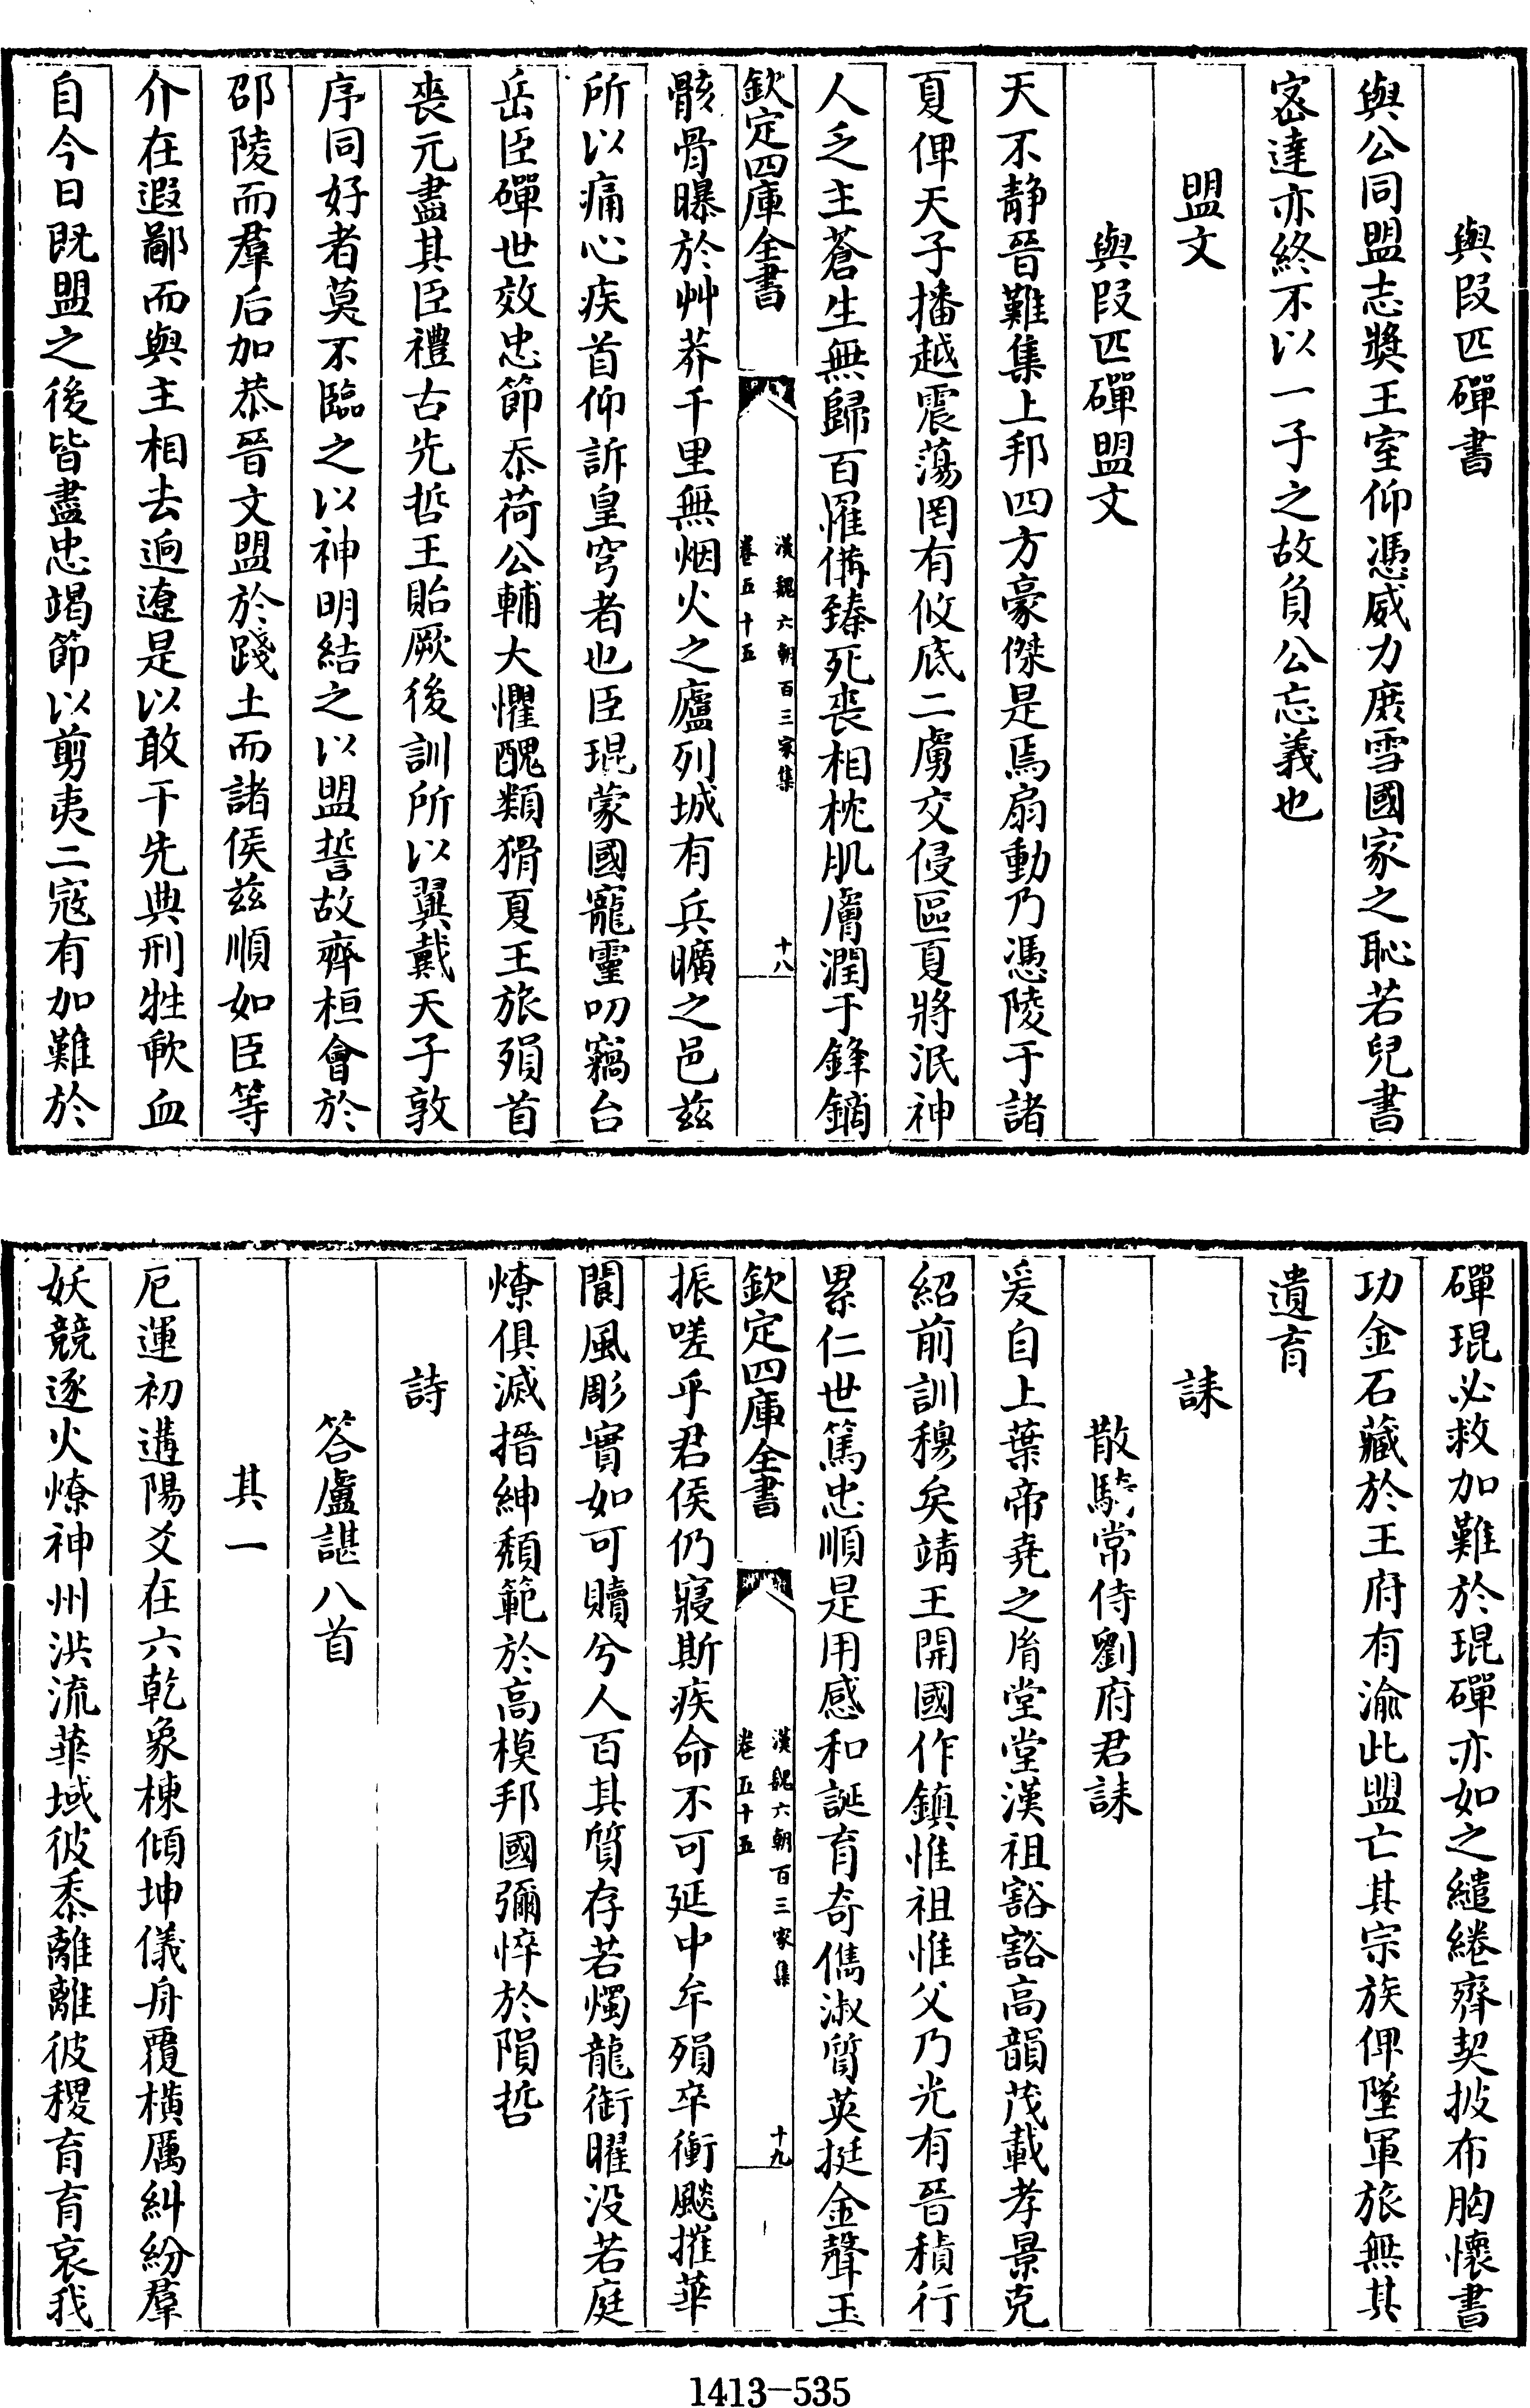 與段匹磾書
與公同盟志獎王室仰憑威力庶雪國家之恥若兒書
宻達亦終不以一子之故負公忘義也
盟文
與段匹磾盟文
天不靜晉難集上邦四方豪傑是焉扇動乃憑陵于諸
夏俾天子播越震蕩罔有攸底二虜交侵區夏將泯神
人乏主蒼生無歸百罹備臻死喪相枕肌膚潤于鋒鏑
欽定四庫全書
漢魏六朝百三家集
卷五十五
十八
骸骨曝於艸莽千里無烟火之廬列城有兵曠之邑兹
所以痛心疾首仰訴皇穹者也臣琨蒙國寵靈叨竊台
岳臣磾世效忠節忝荷公輔大懼醜類猾夏王旅殞首
喪元盡其臣禮古先哲王貽厥後訓所以翼戴天子敦
序同好者莫不臨之以神明結之以盟誓故齊桓會於
邵陵而羣后加恭晉文盟於踐土而諸侯兹順如臣等
介在遐鄙而與主相去逈遼是以敢干先典刑牲歃血
自今日既盟之後皆盡忠竭節以剪夷二寇有加難於
磾琨必救加難於琨磾亦如之繾綣齊契披布胸懷書
功金石藏於王府有渝此盟亡其宗族俾墜軍旅無其
遺育
誄
散騎常侍劉府君誄
爰自上葉帝堯之胄堂堂漢祖豁豁高韻茂載孝景克
紹前訓穆矣靖王開國作鎮惟祖惟父乃光有晉積行
累仁世篤忠順是用感和誕育奇儁淑質英挺金聲玉
欽定四庫全書
漢魏六朝百三家集
卷五十五
十九
振嗟乎君侯仍寢斯疾命不可延中年殞卒衝飈摧華
閬風彫實如可贖兮人百其質存若燭龍銜曜没若庭
燎俱滅搢紳頽範於高模邦國彌悴於隕哲
詩
答盧諶八首
其一
厄運初遘陽爻在六乾象棟傾坤儀舟覆橫厲糾紛羣
妖競逐火燎神州洪流華域彼黍離離彼稷育育哀我
1413-535